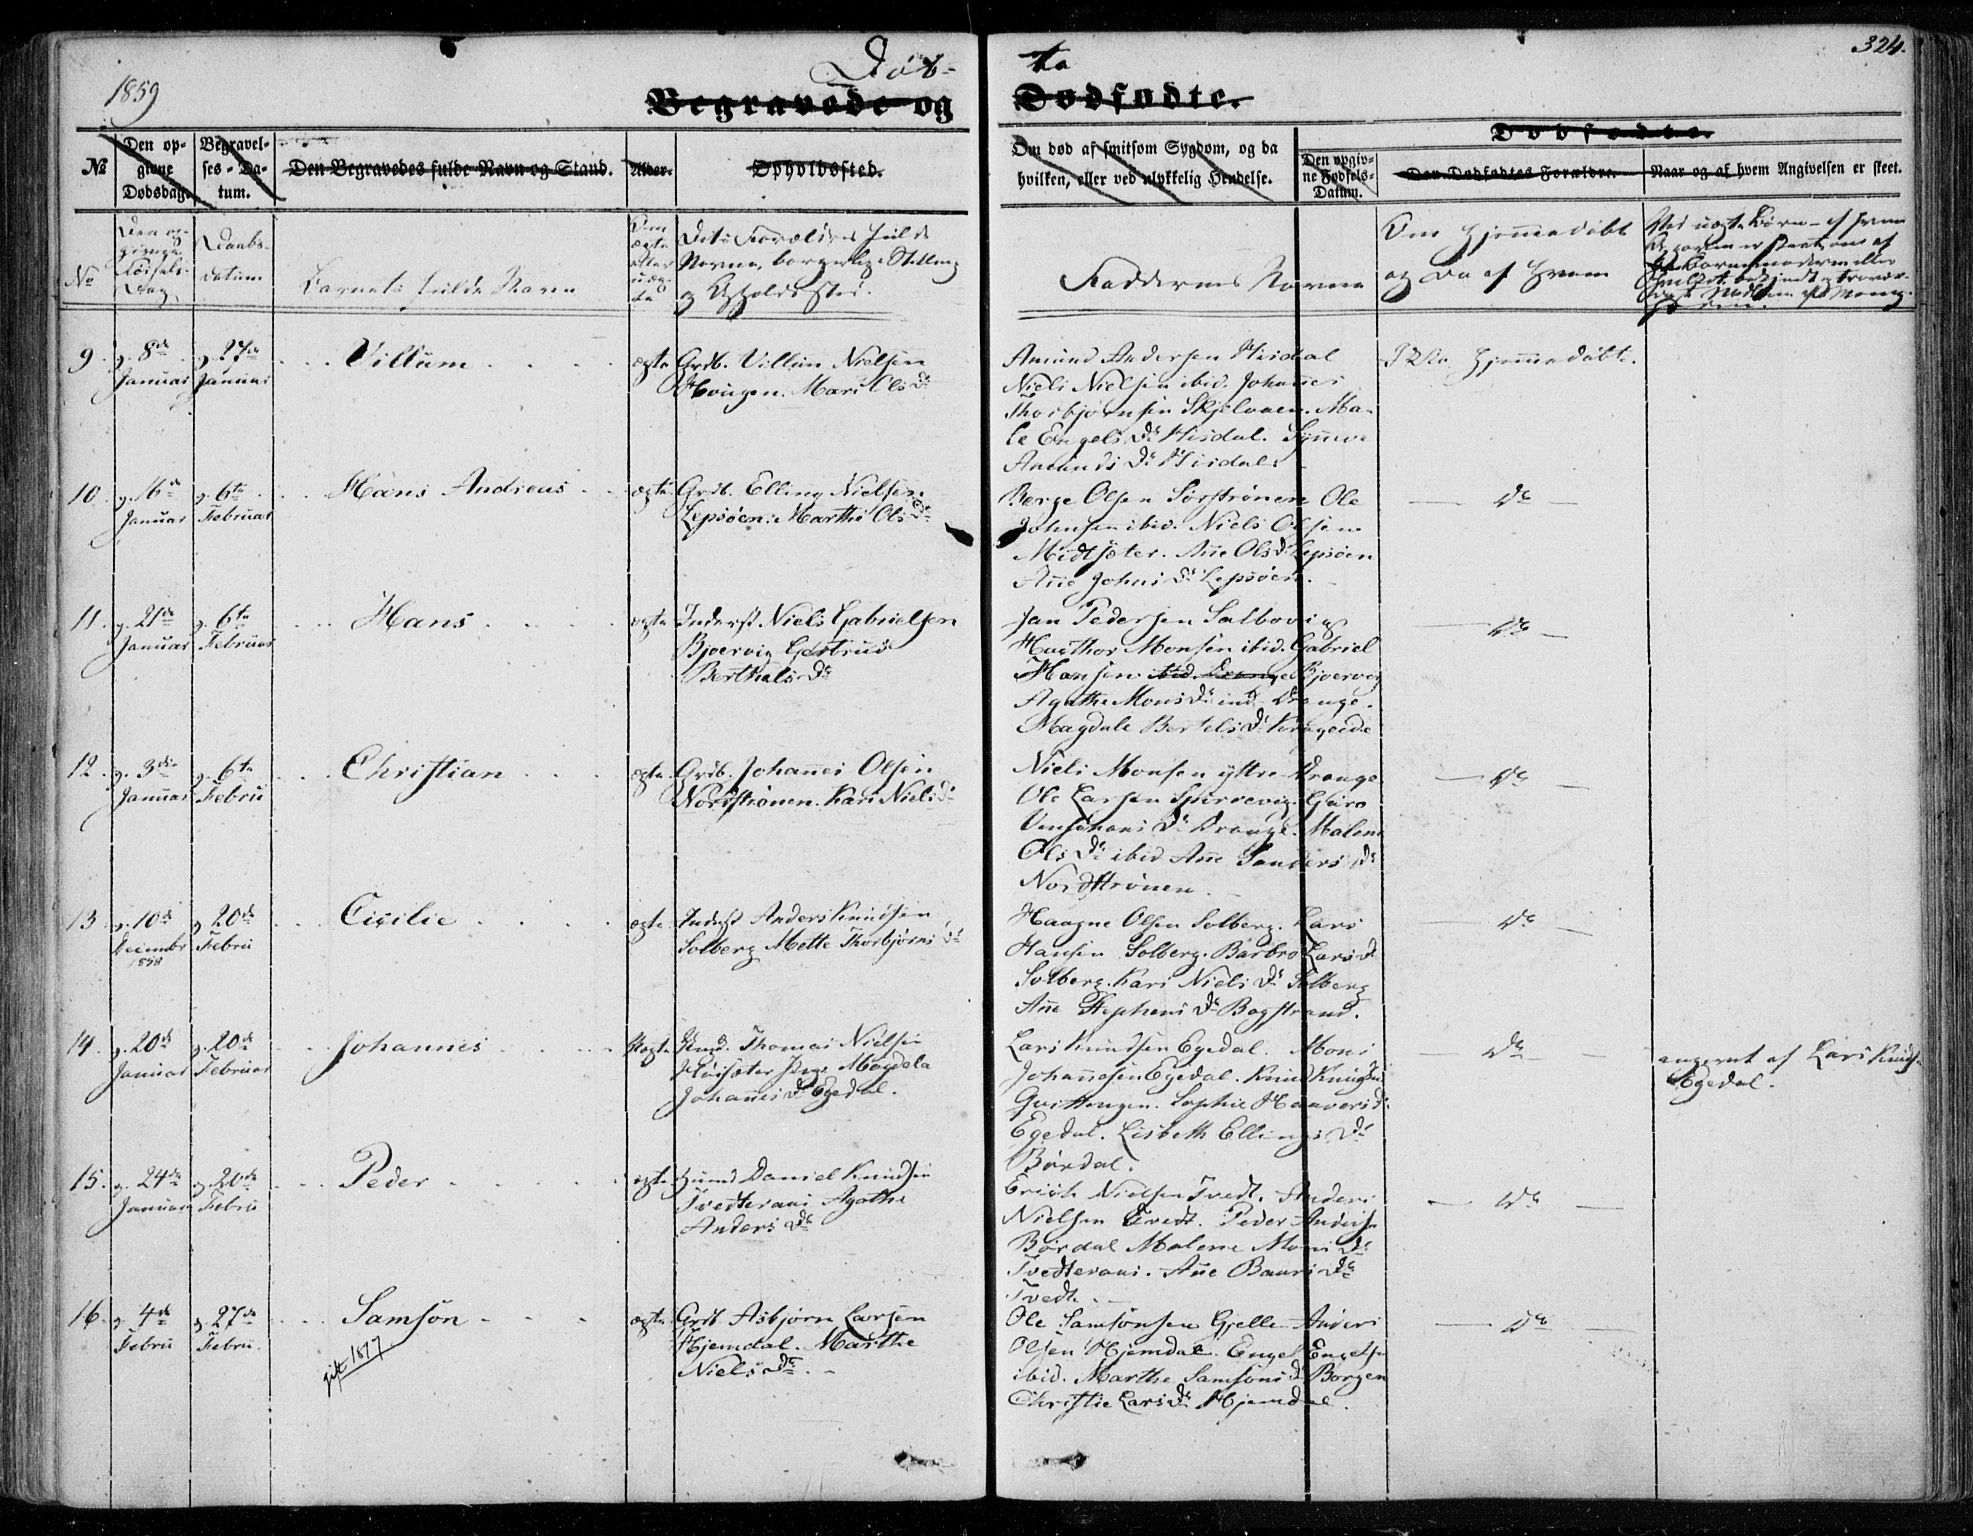 1859
Døb-
te
324.
Begravede og
Dødfødte.
Dødfødte.
No
Den op-
givne
Dødsdag.
Begravel-
ses-Da-
tum.
Den Begravedes fulde Navn og Stand.
Alder.
Opholdssted.
Om død af smitsom Sygdom, og da
hvilken, eller ved ulykkelig Hendelse.
Den opgiv-
ne Fødsels-
Datum.
Den Dødfødtes Forældre.
Naar og af hvem Angivelsen er skeet.
No
Den op-
givne
Føsels-
Dag
Daabs-
datum
Barnets fulde Navn
Om
ægte
eller
uæg-
te
Dets Forældres fulde
Navne, borgerlige Stilling
og Opholdssted.
Faddernes Navne
Om hjemmedøbt
og da af hvem
Ved uægte Børn - af hvem
9. g. 8de Januar g. 27de Januar Villum ægte Grdb. Villum Nielsen
Hougen. Mari Ols Dr
Amund Andersen Hisdal
Niels Nielsen ibid. Johannes
Thorbjørnsen Skjelvaen. Ma-
le Engels Dr Hisdal. Synneve
Amunds Dr Hisdal
Ikke hjemmedøbt.
10. g. 16de Januar g. 6te Februar Hans Andreas ægte Grdb. Elling Nielsen
Lepsøen. Marthe Ols Dr
Berge Olsen Sørstrønen Ole
Johnsen ibid. Niels Olsen
Midtsæter. Ane Ols Dr Lepsøen
Ane Johns Dr Lepsøen.
Do
11. g. 21de Januar g. 6te Februar Hans ægte Inderst Niels Gabrielsen
Bjoervig Gertrud
Berthels Dr
Jan Pedersen Salbovig
Hagthor Monsen ibid. Gabriel
Hansen ibid. Drange Bjoervig
Agathe Mons Dr ind. Drange.
Magdale Bertels Dr Krogeide
Do
12. g. 3die Januar g. 6te Febru Christian ægte Grdb. Johannes Olsen
Nordstrønen. Kari Niels Dr
Niels Monsen yttre Drange
Ole Larsen Spirrevig. Guro
Dr Drange. Malene
Ols Dr ibid Ane Sanders Dr
Nordstrønen.
Do
13 g. 10de Decembr 1858 g. 20de Febru Cicilie ægte Inderst Anders Knudsen
Solberg Mette Thorbjørns Dr
Haagne Olsen Solberg. Lars
Hansen Solberg. Barbro Lars Dr
Solberg. Kari Niels Dr Solberg
Ane Stephens Dr Bogstrand.
Do
14. g. 20de Januar g. 20de Februar Johannes Uægte Ungk. Thomas Nielsen
Pige Magdela
Johannes Dr Egedal.
Lars Knudsen Egedal. Mons
Johannesen Egedal. Knud Knudsen
Gvittengen. Sophie Haavers Dr
Egedal. Lisbeth Ellings Dr
Børdal.
Do
angivet af Lars Knuds.
Egedal.
15. g. 24de Januar g. 20de Febru Peder ægte Huusmd Daniel Knudsen
Tvedteraas Agathe
Anders Dr
Erich Nielsen Tvedt. Anders
Nielsen Tvedt. Peder Andersen
Børdal Malene Mons Dr
Tvedteraas. Ane Baars Dr
Tvedt.
Do
16. g. 4de Febru g. 27de Febru. Samson ægte Grdb Asbjørn Larsen
Hjemdal. Marthe
Niels Dr
gift 1877
Ole Samsonsen Gjelle Anders
Olsen Hjemdal. Engel Engelsen
ibid. Marthe Samsons Dr Borgen
Christie Lars Dr Hjemdal.
Do